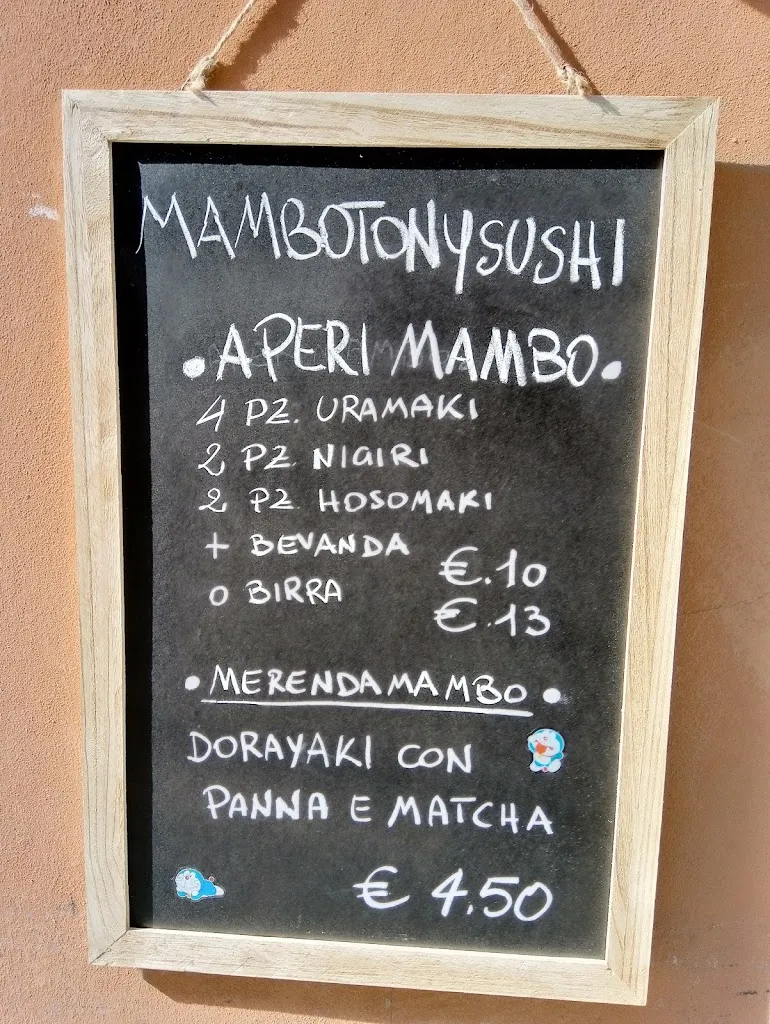 MAMBOTONYSUSHI
• APERI MAMBO •
4 PZ. URAMAKI
2 PZ. NIGIRI
2 PZ HOSOMAKI
+ BEVANDA €.10
O BIRRA €.13
• MERENDAMAMBO •
DORAYAKI CON
PANNA E MATCHA
€ 4.50